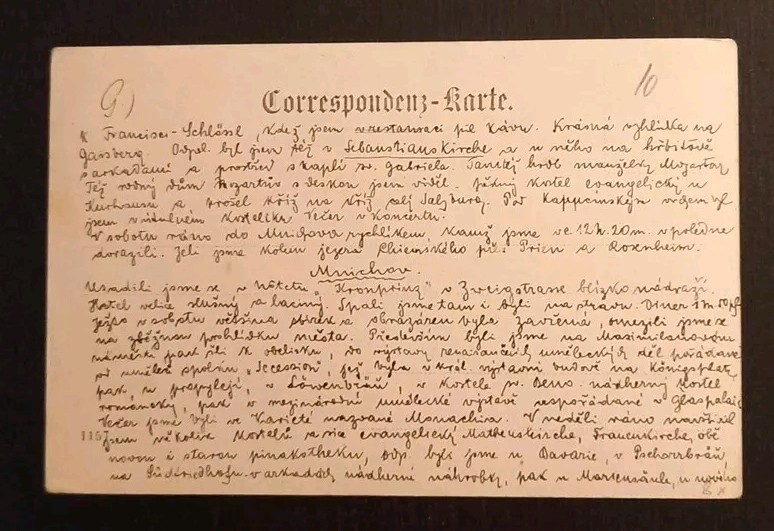 G.)
10
Correspondenz-Karte.
k Francisci-Schlössl, kdež jsem v restauraci pil kávu. Krásná vyhlídka na
Gaisberg. Odpol. byl jsem též v Sebastianskirche a u něho na hřbitově
s arkádami a prostřed s kaplí sv. Gabriela. Tamtéž hrob manželky Mozartovy
Též rodný dům Mozartův s deskou jsem viděl. Pěkný kostel evangelický u
Kurhausu a prošel kříž na kříž celý Salzburg. Pod Kapucínským vrchem byl
jsem v kostelíku. Večer v koncertu.
V sobotu ráno do Mnichova rychlíkem, kamž jsme ve 12 h. 20 m. v poledne
dorazili. Jeli jsme kolem jezera Chiemského přes Prien a Rosenheim.
Mnichov.
Usadili jsme se v hôtelu "Kronprinz" v Zweigstrasse blízko nádraží.
Hotel velice slušný a laciný. Spali jsme tam i byli na stravu. Diner 1 M 50 pf.
Ježto v sobotu většina sbírek a obrazáren byla zavřená, omezili jsme se
na zběžnou prohlídku města. Především byli jsme na Maximilianovom
náměstí pak šli k obelisku, do výstavy renaissančních uměleckých děl pořádané
od uměleč. spolku "Secession", jež byla v král. výstavní budově na Königsplatz,
pak u propylejí, v Löwenbräu, v kostele sv. Beno. nádherný kostel
románský, pak v mezinárodní umělecké výstavě uspořádané v Glaspalais
Večer jsme byli ve Varieté nazvané Monachia. V neděli ráno navštívil
1157 jsem několik kostelů a sice evangelický Matheuskirche, Frauenkirche, obě
novou i starou pinakotheku, odp. byli jsme u Bavarie, v Pschorrbräu
na Südfriedhofu v arkádách nádherné náhrobky, pak u Mariensäule, u nového